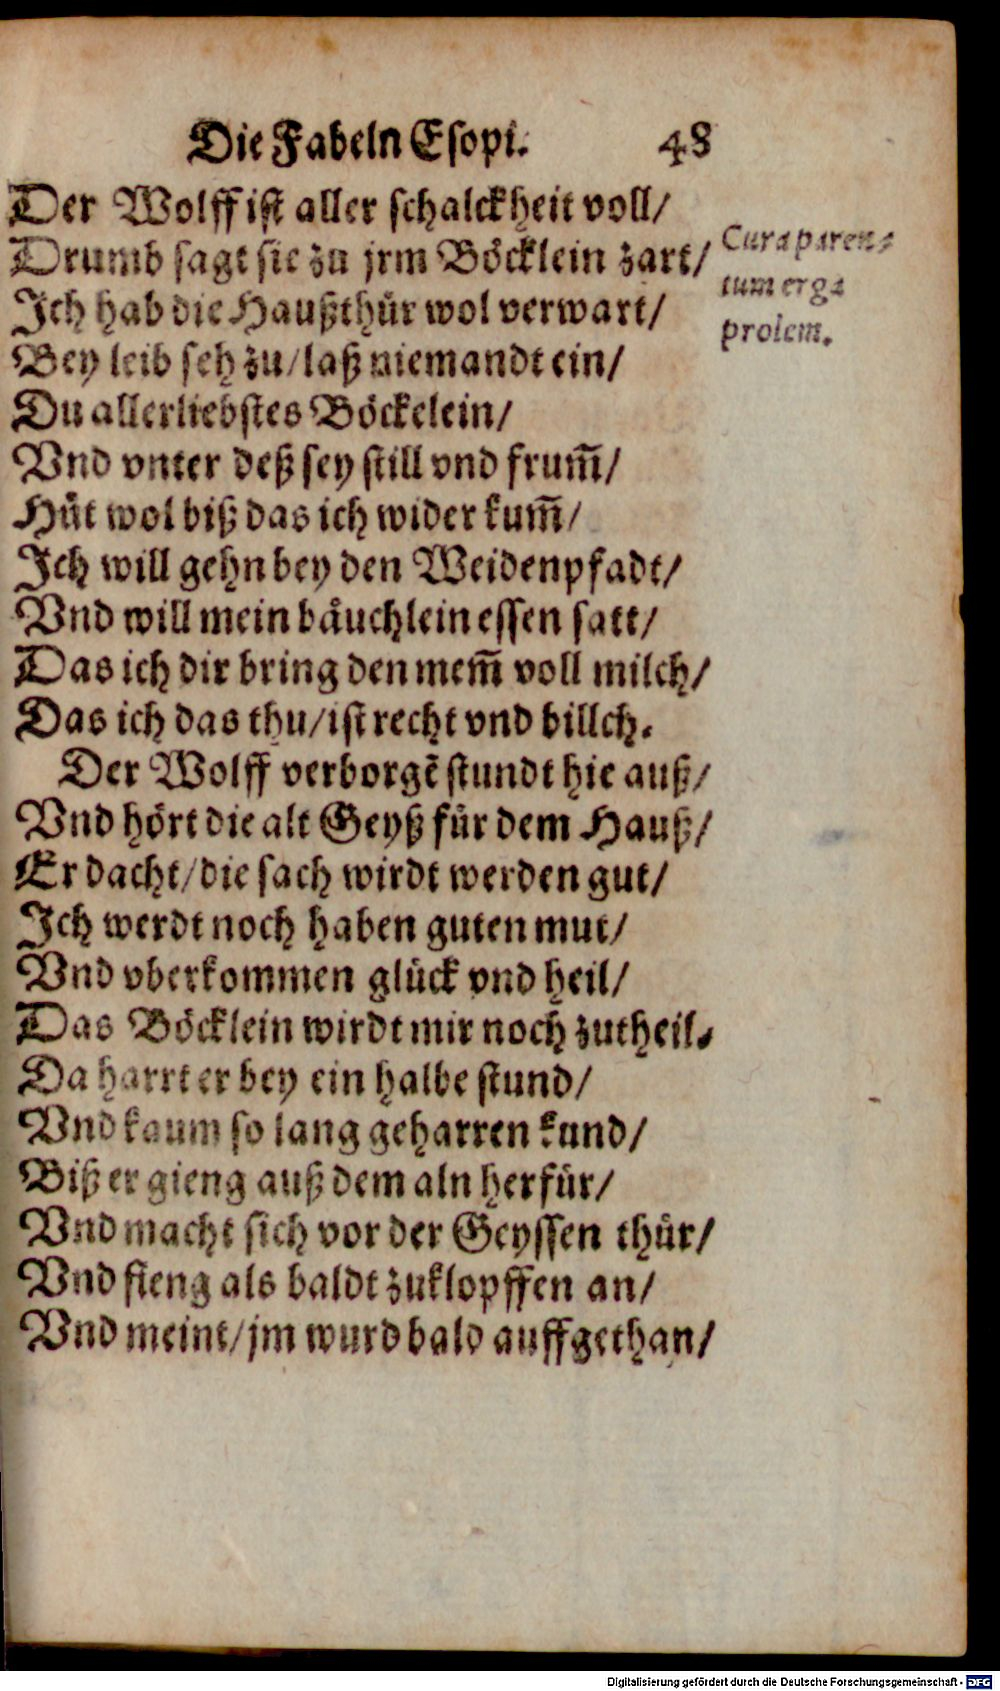 Die Fabeln Esopi. 48
Der Wolff ist aller schalckheit voll/
Drumb sagt sie zu jrm Böcklein zart/
Ich hab die Haußthür wol verwart/
Bey leib seh zu/laß niemandt ein/
Du allerliebstes Böckelein/
Vnd vnter deß sey still vnd frum̃/
Hüt wol biß das ich wider kum̃/
Ich will gehn bey den Weidenpfadt/
Vnd will mein bäuchlein essen satt/
Das ich dir bring den mem̃ voll milch/
Das ich das thu/ist recht vnd billch.
Der Wolff verborgẽ stundt hie auß/
Vnd hört die alt Geyß für dem Hauß/
Er dacht/die sach wirdt werden gut/
Ich werdt noch haben guten mut/
Vnd vberkommen glück vnd heil/
Das Böcklein wirdt mir noch zutheil.
Da harrt er bey ein halbe stund/
Vnd kaum so lang geharren kund/
Biß er gieng auß dem aln herfür/
Vnd macht sich vor der Geyssen thür/
Vnd fieng als baldt zuklopffen an/
Vnd meint/jm wurd bald auffgethan/
Cura paren-
tum erga
prolem.
Digitalisierung gefördert durch die Deutsche Forschungsgemeinschaft - DFG